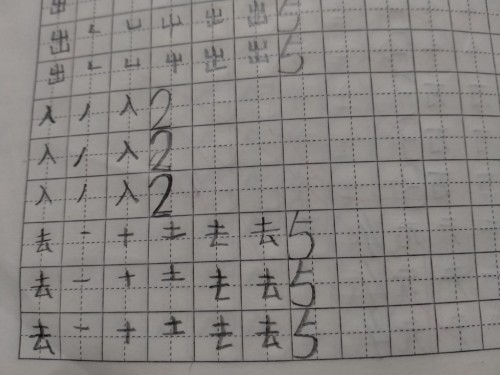 出 ㇄ 凵 屮 出 出 5
出 ㇄ 凵 屮 出 出 5
入 丿 入 2
入 丿 入 2
入 丿 入 2
去 一 十 土 去 5
去 一 十 土 去 5
去 一 十 土 去 5